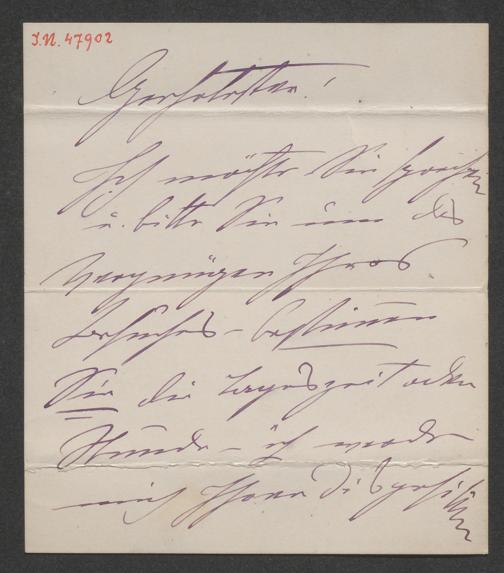 I.N. 47902
Geehrtester!
Ich möchte Sie sprechen
u. bitte Sie um das
Vergnügen Ihres
Besuches – bestimmen
Sie die Tageszeit oder
Stunde – ich werde
mich Ihnen disponibel